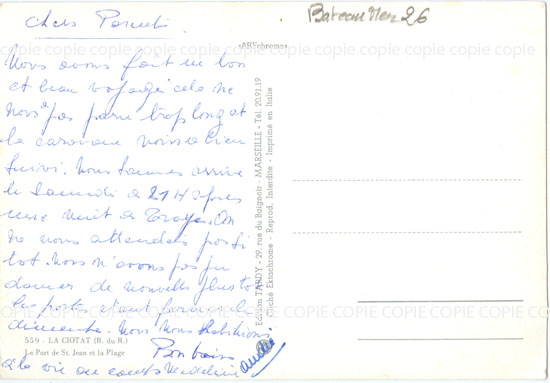 Chers Parents
Bateau Mer 26
«ARYchrome»
COPIE COPIE COPIE COPIE COPIE COPIE COPIE COPIE COPIE COPIE
Nous avons fait un bon
et beau voyage cela ne
nous a pas paru trop long et
la caravane nous a bien
suivi. Nous sommes arrivé
le Samedi a 21 H après
une nuit a Troyes. On
ne nous attendais pas si
tot. Nous n'avons pas pu
donner de nouvelle plus tot
les postes étant fermé le
dimanche. Nous nous habituons
a la vie au camp
Bon baisers
Madeleine
559 - LA CIOTAT (B. du R.)
Le Port de St. Jean et la Plage
Edition TARDY - 29, rue du Baignoir - MARSEILLE - Tél. 20.91.19
Cliché Ektachrome - Reprod. Interdite - Imprimé en Italie